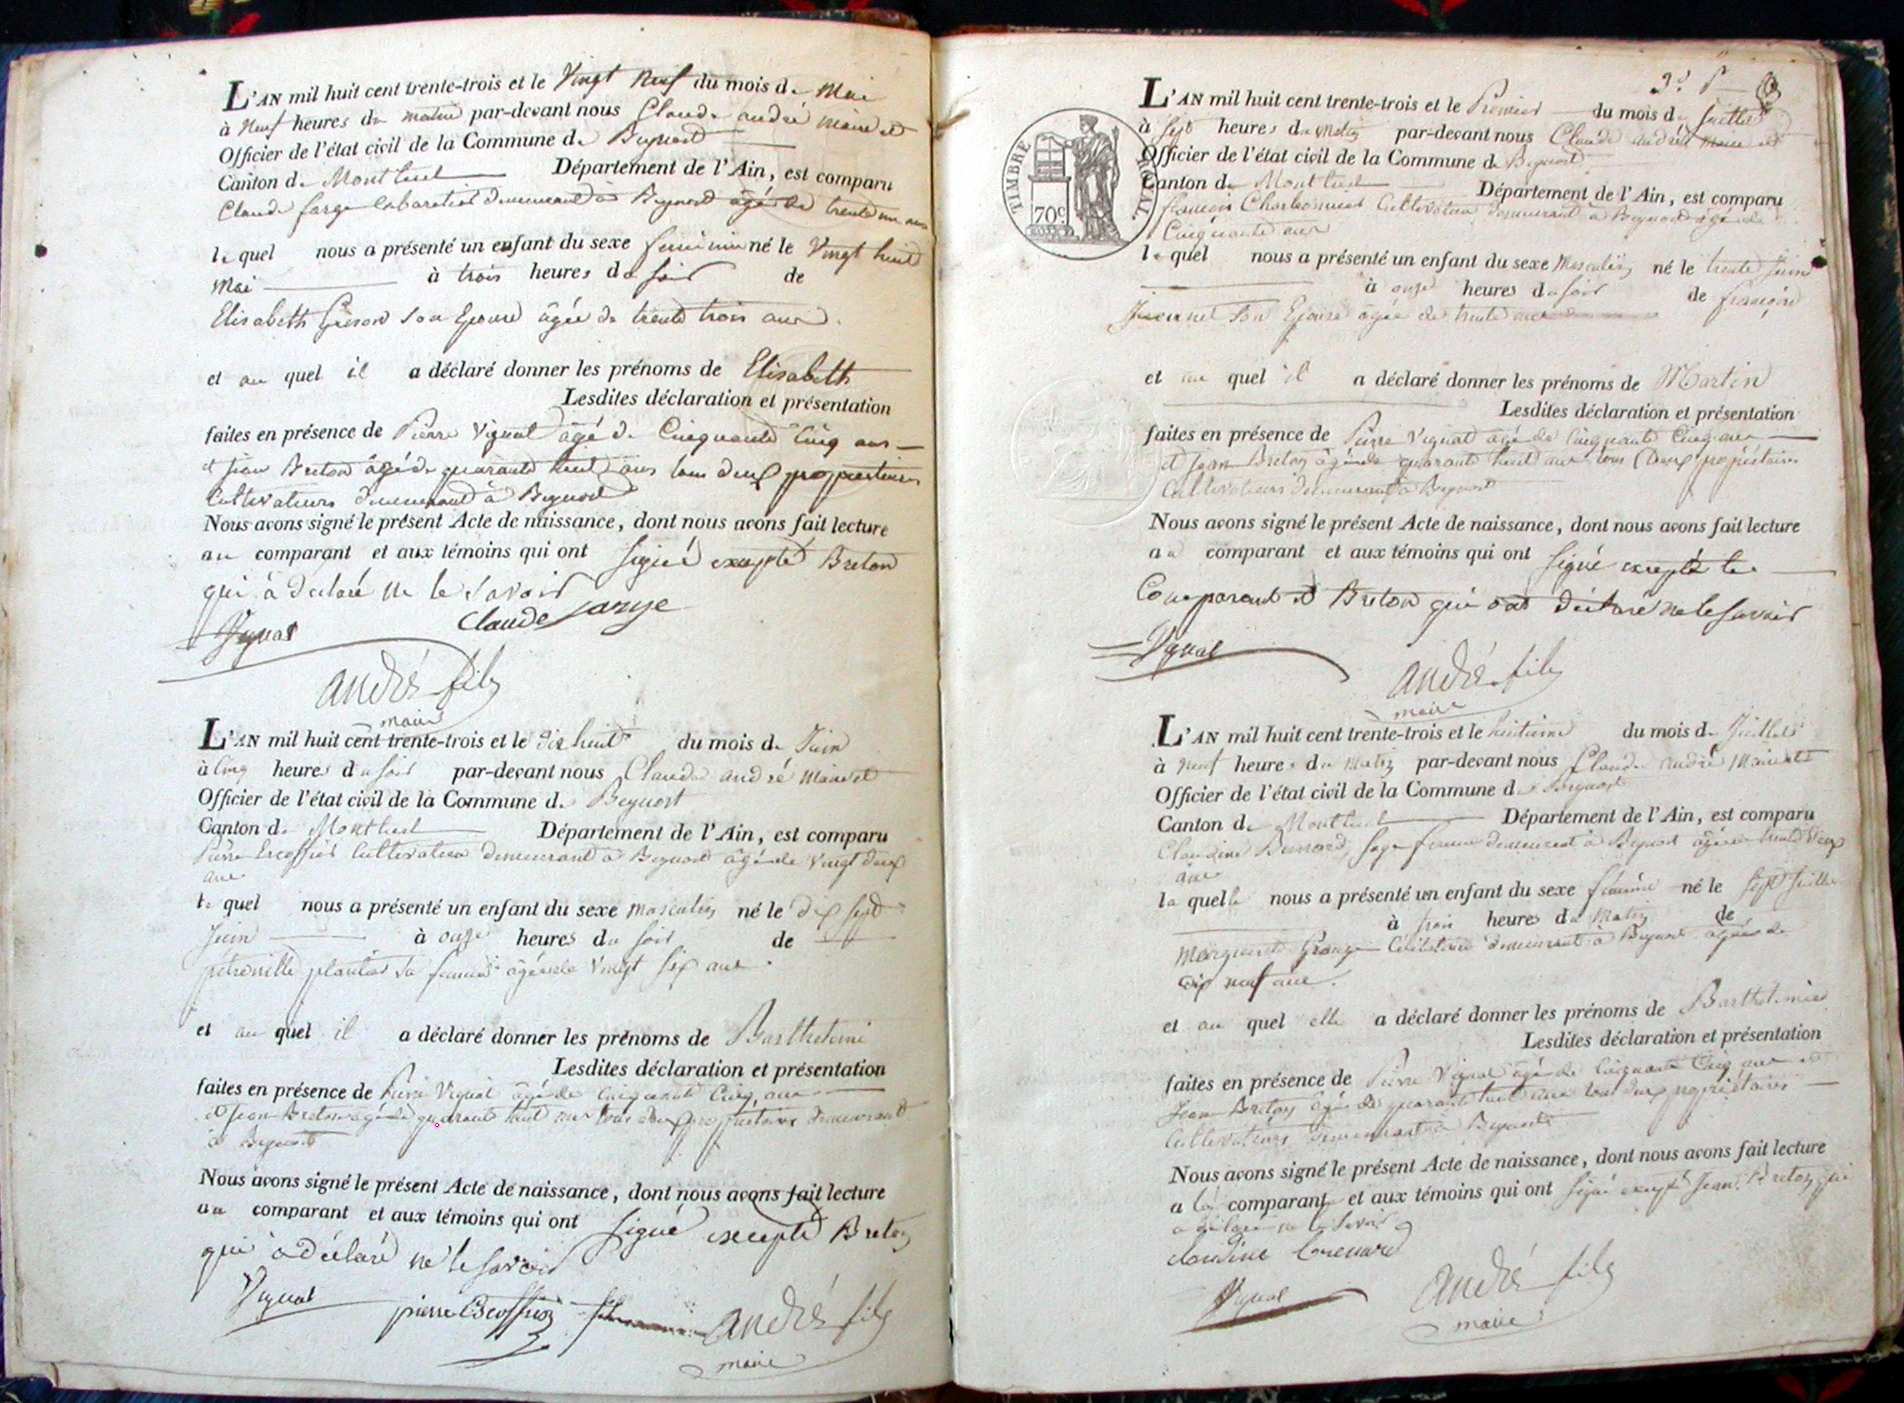 L'AN mil huit cent trente-trois et le Vingt Neuf du mois de Mai
à Neuf heures du matin par-devant nous Claude andré maire et
Officier de l'état civil de la Commune de Beynost
Canton de Montluel Département de l'Ain, est comparu
Claude farge Cabaretier demeurant à Beynost âgé de trente un ans
le quel nous a présenté un enfant du sexe feminin né le Vingt huit
Mai à trois heures du soir de
Elisabeth son Epouse âgée de trente trois ans
et au quel il a déclaré donner les prénoms de Elisabeth
Lesdites déclaration et présentation
faites en présence de Pierre Vignat âgé de Cinquante Cinq ans
et jean Breton âgé de quarante huit ans tous deux propriétaires
Cultivateurs demeurant à Beynost
Nous avons signé le présent Acte de naissance, dont nous avons fait lecture
au comparant et aux témoins qui ont signé excepté Breton
qui à declaré ne le savoir
Vignat Claude farge
andré fils
maire
L'AN mil huit cent trente-trois et le dix huit du mois de Juin
à Cinq heures du soir par-devant nous Claude andré Maire et
Officier de l'état civil de la Commune de Beynost
Canton de Montluel Département de l'Ain, est comparu
Pierre Escoffier Cultivateur demeurant à Beynost âgé de Vingt deux
ans
le quel nous a présenté un enfant du sexe masculin né le dix sept
Juin à onze heures du soir de
petronille plantier sa femme âgée de Vingt six ans
et au quel il a déclaré donner les prénoms de Barthelemi
Lesdites déclaration et présentation
faites en présence de Pierre Vignat âgé de Cinquante Cinq ans
et Jean Breton âgé de quarante huit ans tous deux propriétaires demeurant
à Beynost
Nous avons signé le présent Acte de naissance, dont nous avons fait lecture
au comparant et aux témoins qui ont signé excepté Breton
qui à déclaré ne le savoir
Vignat pierre Escoffier fils andré fils
maire
L'AN mil huit cent trente-trois et le Premier du mois de Juillet
à sept heures du matin par-devant nous Claude andré Maire et
Officier de l'état civil de la Commune de Beynost
Canton de Montluel Département de l'Ain, est comparu
TIMBRE ROYAL.
70c
françois Charbonnet Cultivateur demeurant à Beynost âgé de
Cinquante ans
le quel nous a présenté un enfant du sexe Masculin né le trente juin
à onze heures du soir de françoise
son Epouse âgée de trente
et au quel il a déclaré donner les prénoms de Martin
Lesdites déclaration et présentation
faites en présence de Pierre Vignat âgé de Cinquante Cinq ans
et Jean Breton âgé de quarante huit ans tous deux propriétaires
Cultivateurs demeurant à Beynost
Nous avons signé le présent Acte de naissance, dont nous avons fait lecture
au comparant et aux témoins qui ont signé excepté le
Comparant et Breton qui ont déclaré ne le savoir
Vignat
andré fils
maire
L'AN mil huit cent trente-trois et le huitieme du mois de Juillet
à Neuf heures du Matin par-devant nous Claude andré Maire et
Officier de l'état civil de la Commune de Beynost
Canton de Montluel Département de l'Ain, est comparu
Claudine Bernard, sage femme demeurant à Beynost âgée de trente deux
ans
la quelle nous a présenté un enfant du sexe féminin né le sept Juillet
à trois heures du Matin de
Marguerite Grange Célibataire demeurant à Beynost âgée de
dix neuf ans
et au quel elle a déclaré donner les prénoms de Barthelemie
Lesdites déclaration et présentation
faites en présence de Pierre Vignat âgé de Cinquante Cinq ans et
Jean Breton âgé de quarante huit ans tous deux propriétaires
Cultivateurs demeurant à Beynost
Nous avons signé le présent Acte de naissance, dont nous avons fait lecture
a la comparante et aux témoins qui ont signé excepté Jean Breton qui
a déclaré ne le savoir
claudine bernard
Vignat andré fils
maire